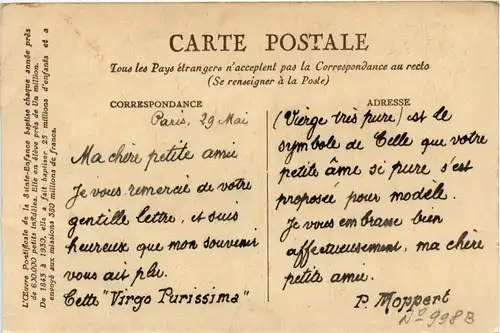 L'Œuvre Pontificale de la Sainte-Enfance baptise chaque année près
de 630.000 petits infidèles. Elle en élève près de Un million.
De 1843 à 1930, elle a fait baptiser 25 millions d'enfants et a
envoyé aux missions 330 millions de francs.
CARTE POSTALE
Tous les Pays étrangers n'acceptent pas la Correspondance au recto
(Se renseigner à la Poste)
CORRESPONDANCE
Paris, 29 Mai
Ma chère petite amie
Je vous remercie de votre
gentille lettre, et suis
heureux que mon souvenir
vous ait plu.
Cette "Virgo Purissima"
ADRESSE
(Vierge très pure) est le
symbole de Celle que votre
petite âme si pure s'est
proposée pour modèle.
Je vous embrasse bien
affectueusement, ma chère
petite amie.
P. Moppert
N° 998B